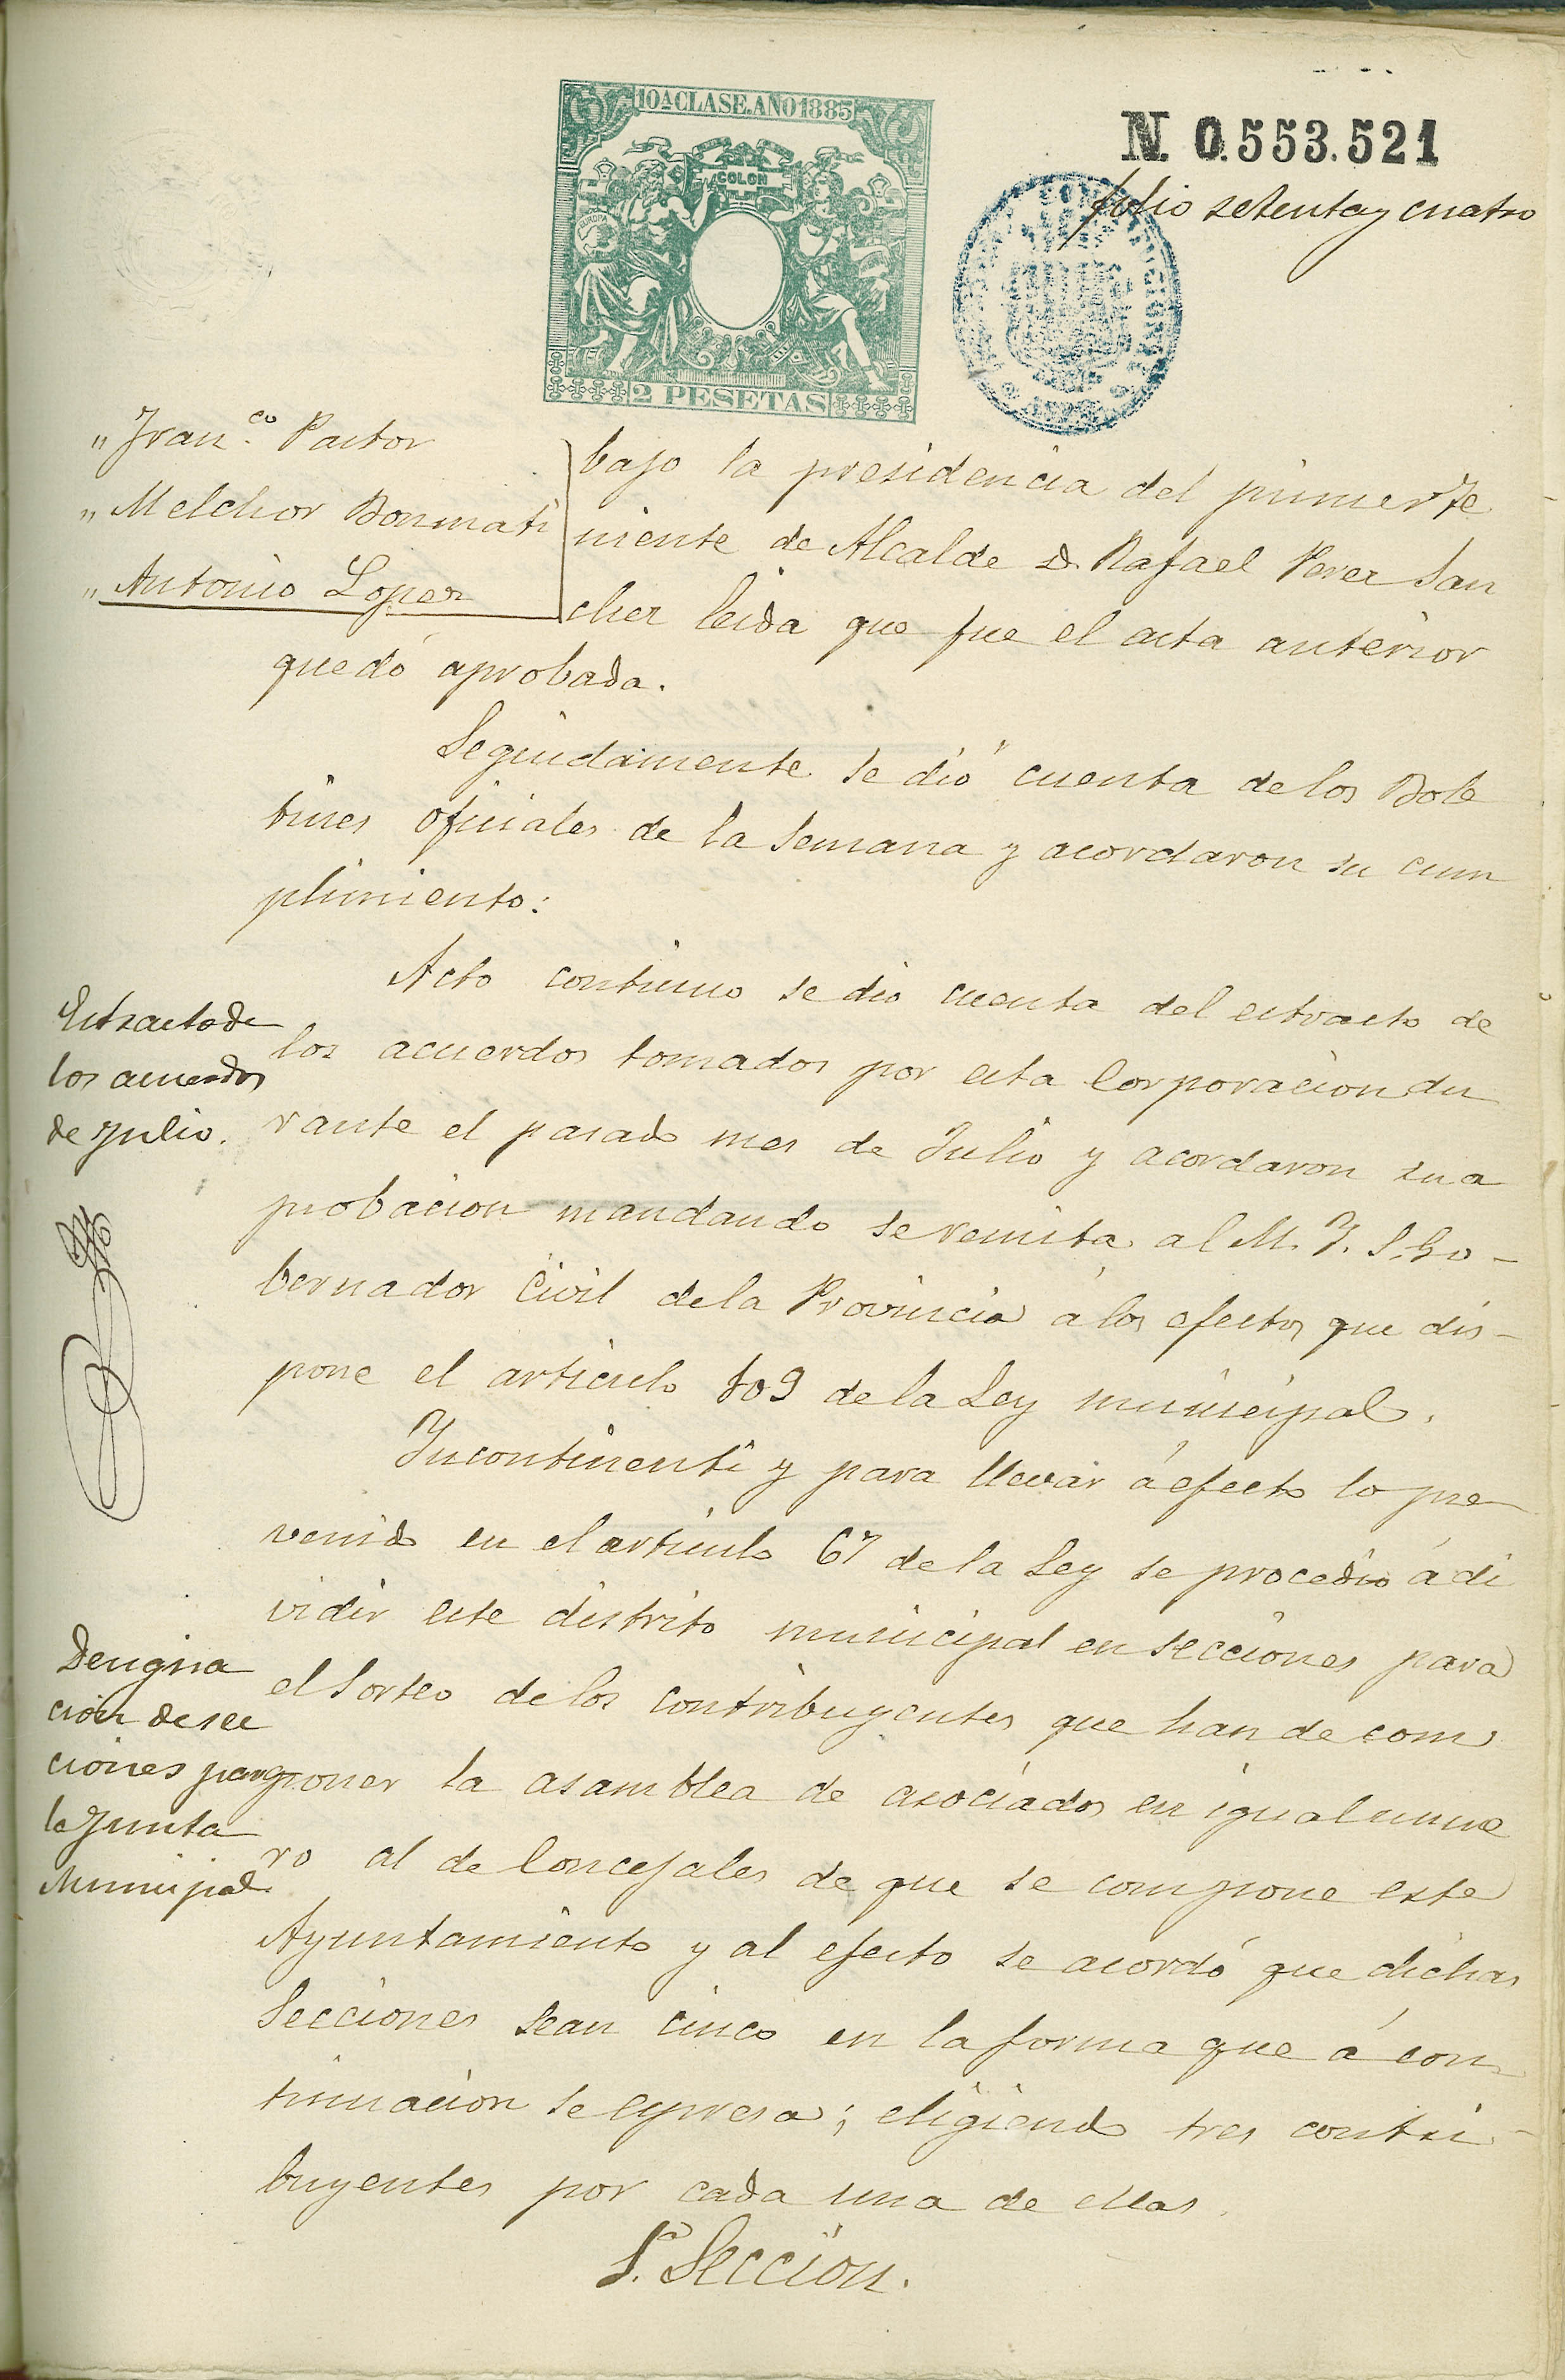 10ª CLASE. AÑO 1885
COLON
EUROPA
2 PESETAS
N. 0.553.521
folio setenta y cuatro
" Fran.co Pastor
" Melchor Bonmati
" Antonio Lopez
bajo la presidencia del primer Te
niente de Alcalde D. Rafael Perez San
chez leida que fue el acta anterior
quedó aprobada.
Seguidamente se dió cuenta de los Bole
tines oficiales de la Semana y acordaron su cum
plimiento:
Acto continuo se dio cuenta del estracto de
los acuerdos tomados por esta Corporacion du
rante el pasado mes de Julio y acordaron su a
probacion mandando se remita al M. Y. S. Go-
bernador Civil de la Provincia á los efectos que dis-
pone el articulo 109 de la Ley municipal.
Estracto de
los acuerdos
de Julio.
Incontinenti y para llevar á efecto lo pre
venido en el articulo 67 de la Ley se procedio á di
vidir este distrito municipal en secciones para
el Sorteo de los contribuyentes que han de com
poner la asamblea de asociados en igual nume
ro al de Concejales de que se compone este
Ayuntamiento y al efecto se acordó que dichas
Secciones sean cinco en la forma que á con
tinuacion se espresa; eligiendo tres contri-
buyentes por cada una de ellas.
Designa
cion de sec
ciones para
la Junta
Municipal.
1.ª Seccion.